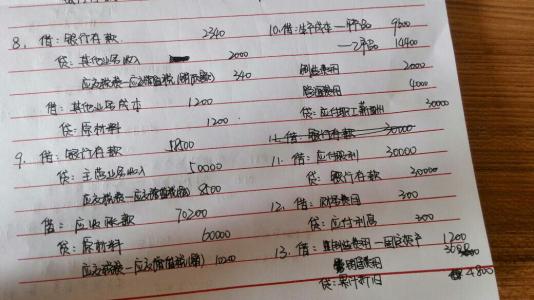 8. 借:银行存款 2340
贷:其他业务收入 2000
应交税费—应交增值税(销项税) 340
借:其他业务成本 1200
贷:原材料 1200
9. 借:银行存款 58500
贷:主营业务收入 50000
应交税费—应交增值税(销) 8500
借:应收账款 70200
贷:原材料 60000
应交税费—应交增值税(销) 10200
10. 借:生产成本—甲产品 9600
—乙产品 14400
制造费用 2000
管理费用 4000
贷:应付职工薪酬 30000
11. 借:银行存款 30000
11. 借:应付股利 30000
贷:银行存款 30000
12. 借:财务费用 300
贷:应付利息 300
13. 借:制造费用— 1200
费用
贷:累计折旧 4800